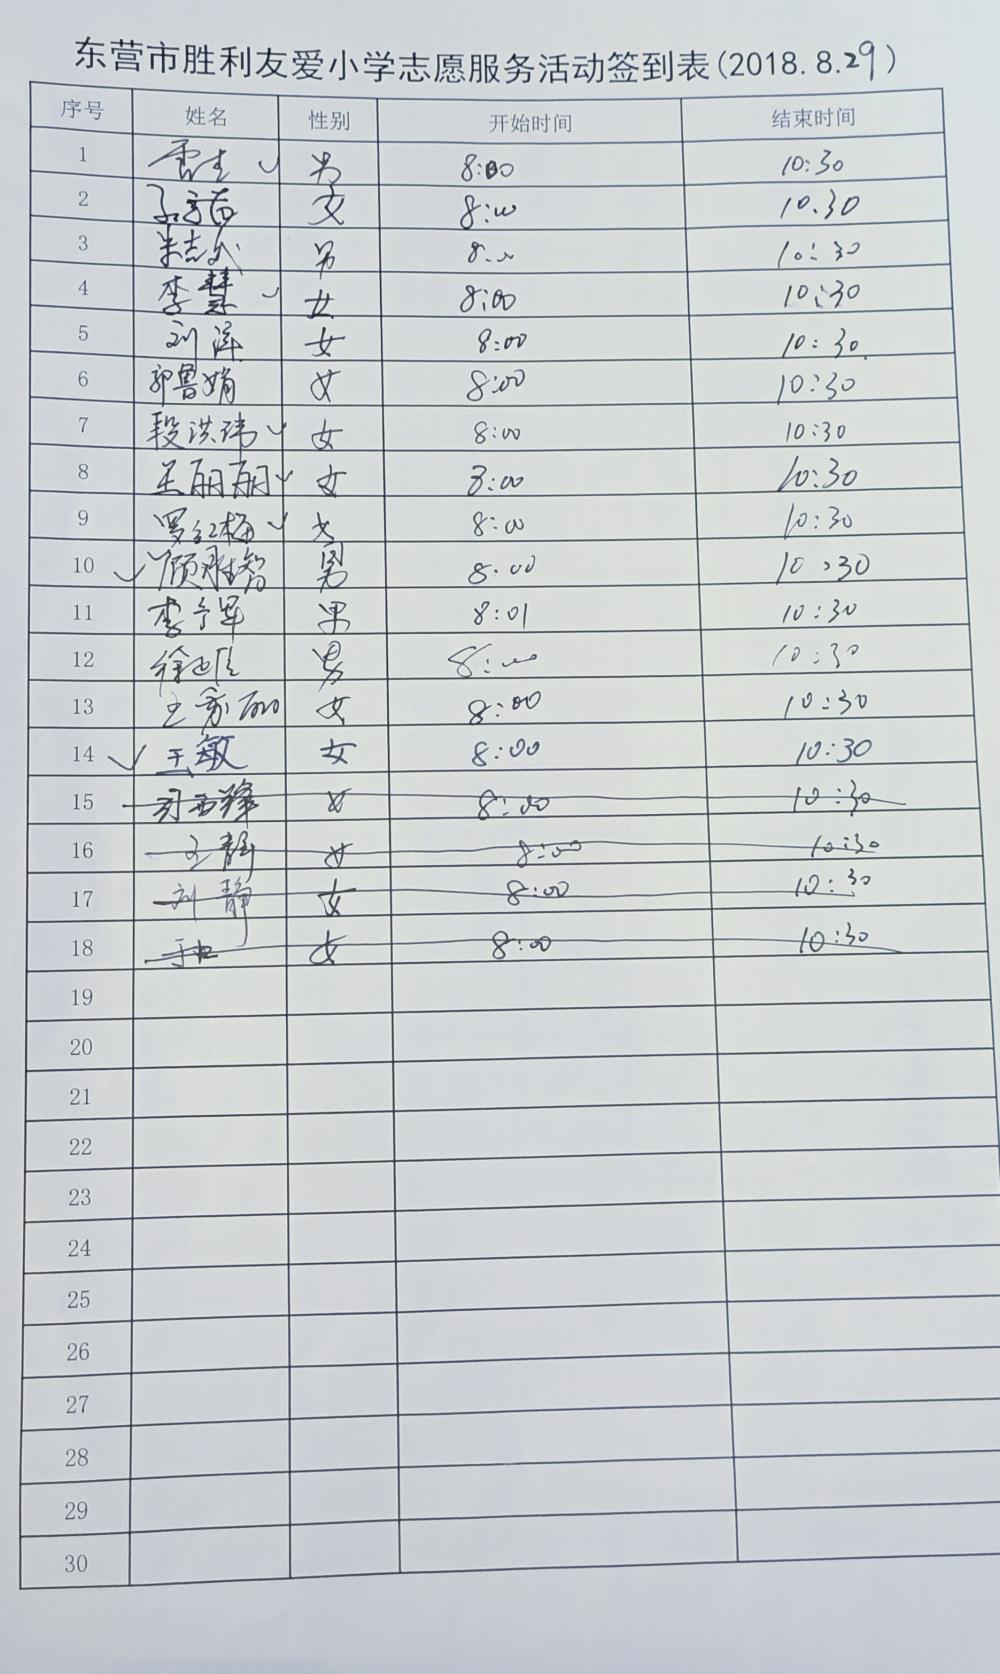 东营市胜利友爱小学志愿服务活动签到表(2018.8.29)
序号 姓名 性别 开始时间 结束时间
1 男 8:00 10:30
2 女 8:00 10.30
3 朱志武 男 8:00 10:30
4 李慧 女 8:00 10:30
5 刘萍 女 8:00 10:30.
6 郭鲁娟 女 8:00 10:30
7 段洪玮 女 8:00 10:30
8 王丽丽 女 8:00 10:30
9 罗红梅 女 8:00 10:30
10 顾胜智 男 8:00 10:30
11 李宁军 男 8:01 10:30
12 男 8:00 10:30
13 王家丽 女 8:00 10:30
14 王敏 女 8:00 10:30
15 女 8:00 10:30
16 王静 女 8:00 10:30
17 刘静 女 8:00 10:30
18 女 8:00 10:30
19
20
21
22
23
24
25
26
27
28
29
30